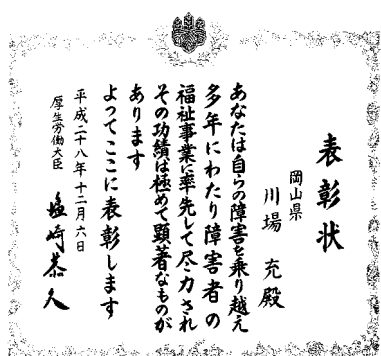 表彰状
岡山県
川場 充 殿
あなたは自らの障害を乗り越え
多年にわたり障害者の
福祉事業に率先して尽力され
その功績は極めて顕著なものが
あります
よってここに表彰します
平成二十八年十二月六日
厚生労働大臣
塩崎恭久